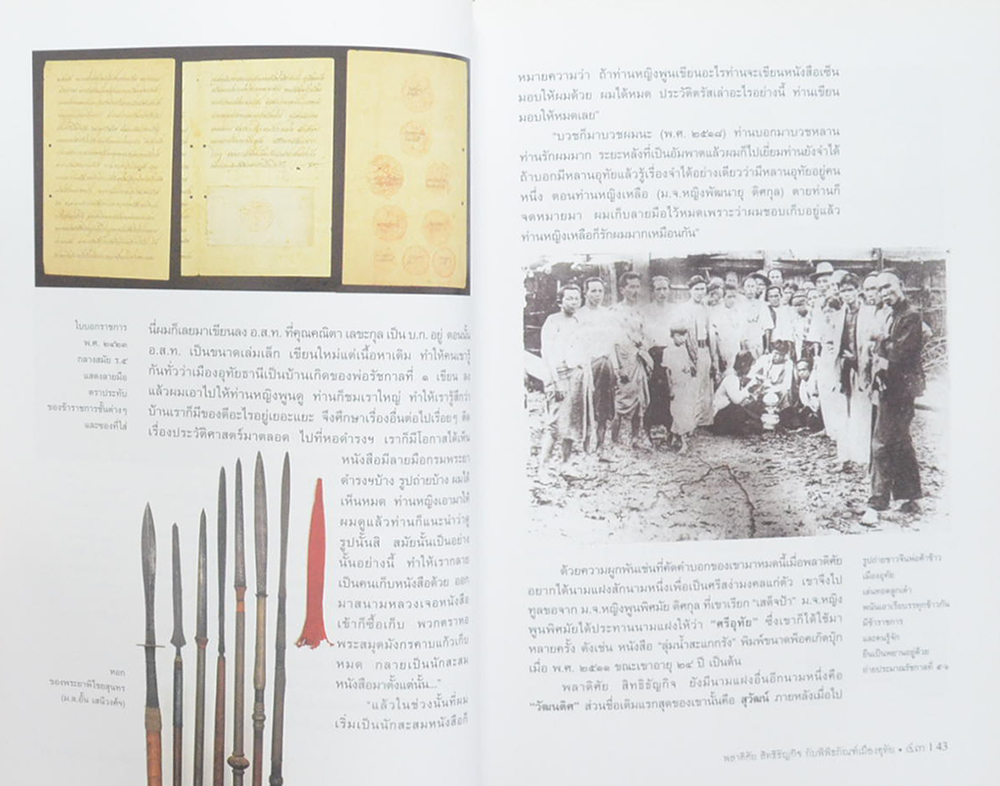 ใบบอกราชการ
พ.ศ. ๒๔๒๓
กลางสมัย ร.๕
แสดงลายมือ
ตราประทับ
ของข้าราชการชั้นต่างๆ
และซองที่ใส่
นี่ผมก็เลยมาเขียนลง อ.ส.ท. ที่คุณคณิตา เลขะกุล เป็น บ.ก. อยู่ ตอนนั้น
อ.ส.ท. เป็นขนาดเล่มเล็ก เขียนใหม่แต่เนื้อหาเดิม ทำให้คนเขารู้
กันทั่วว่าเมืองอุทัยธานีเป็นบ้านเกิดของพ่อรัชกาลที่ ๑ เขียน ลง
แล้วผมเอาไปให้ท่านหญิงพูนดู ท่านก็ชมเราใหญ่ ทำให้เรารู้สึกว่า
บ้านเราก็มีของดีอะไรอยู่เยอะแยะ จึงศึกษาเรื่องอื่นต่อไปเรื่อยๆ ติด
เรื่องประวัติศาสตร์มาตลอด ไปที่หอดำรงฯ เราก็มีโอกาสได้เห็น
หนังสือมีลายมือกรมพระยา
ดำรงฯบ้าง รูปถ่ายบ้าง ผมได้
เห็นหมด ท่านหญิงเอามาให้
ผมดูแล้วท่านก็แนะนำว่าดู
รูปนั้นสิ สมัยนั้นเป็นอย่าง
นั้นอย่างนี้ ทำให้เรากลาย
เป็นคนเก็บหนังสือด้วย ออก
มาสนามหลวงเจอหนังสือ
เข้าก็ซื้อเก็บ พวกตราหอ
พระสมุดมังกรคาบแก้วเก็บ
หมด กลายเป็นนักสะสม
หนังสือมาตั้งแต่นั้น..."
"แล้วในช่วงนั้นที่ผม
เริ่มเป็นนักสะสมหนังสือก็
หอก
ของพระยาพิไชยสุนทร
(ม.ล.อั้น เสนีวงศ์ฯ)
หมายความว่า ถ้าท่านหญิงพูนเขียนอะไรท่านจะเขียนหนังสือเซ็น
มอบให้ผมด้วย ผมได้หมด ประวัติตรัสเล่าอะไรอย่างนี้ ท่านเขียน
มอบให้หมดเลย"
"บวชก็มาบวชผมนะ (พ.ศ. ๒๕๑๘) ท่านบอกมาบวชหลาน
ท่านรักผมมาก ระยะหลังที่เป็นอัมพาตแล้วผมก็ไปเยี่ยมท่านยังจำได้
ถ้าบอกมีหลานอุทัยแล้วรู้เรื่องจำได้อย่างเดียวว่ามีหลานอุทัยอยู่คน
หนึ่ง ตอนท่านหญิงเหลือ (ม.จ.หญิงพัฒนายุ ดิศกุล) ตายท่านก็
จดหมายมา ผมเก็บลายมือไว้หมดเพราะว่าผมชอบเก็บอยู่แล้ว
ท่านหญิงเหลือก็รักผมมากเหมือนกัน"
ด้วยความผูกพันเช่นที่คัดคำบอกของเขามาหมดนี้เมื่อพลาดิศัย
อยากได้นามแฝงสักนามหนึ่งเพื่อเป็นศรีสง่ามงคลแก่ตัว เขาจึงไป
ทูลขอจาก ม.จ.หญิงพูนพิศมัย ดิศกุล ที่เขาเรียก "เสด็จป้า" ม.จ.หญิง
พูนพิศมัยได้ประทานนามแฝงให้ว่า "ศรีอุทัย" ซึ่งเขาก็ได้ใช้มา
หลายครั้ง ดังเช่น หนังสือ "ลุ่มน้ำสะแกกรัง" พิมพ์ขนาดพ็อคเก็ตบุ๊ก
เมื่อ พ.ศ. ๒๕๑๑ ขณะเขาอายุ ๒๔ ปี เป็นต้น
พลาดิศัย สิทธิธัญกิจ ยังมีนามแฝงอื่นอีกนามหนึ่งคือ
"วัฒนดิศ" ส่วนชื่อเดิมแรกสุดของเขานั้นคือ สุวัฒน์ ภายหลังเมื่อไป
รูปถ่ายชาวจีนพ่อค้าข้าว
เมืองอุทัย
เล่นทอดลูกเต๋า
พนันเอาเรือบรรทุกข้าวกัน
มีข้าราชการ
และคนรู้จัก
ยืนเป็นพยานอยู่ด้วย
ถ่ายประมาณรัชกาลที่ ๕-๖
พลาดิศัย สิทธิธัญกิจ กับพิพิธภัณฑ์เมืองอุทัย • ๔๓ | 43